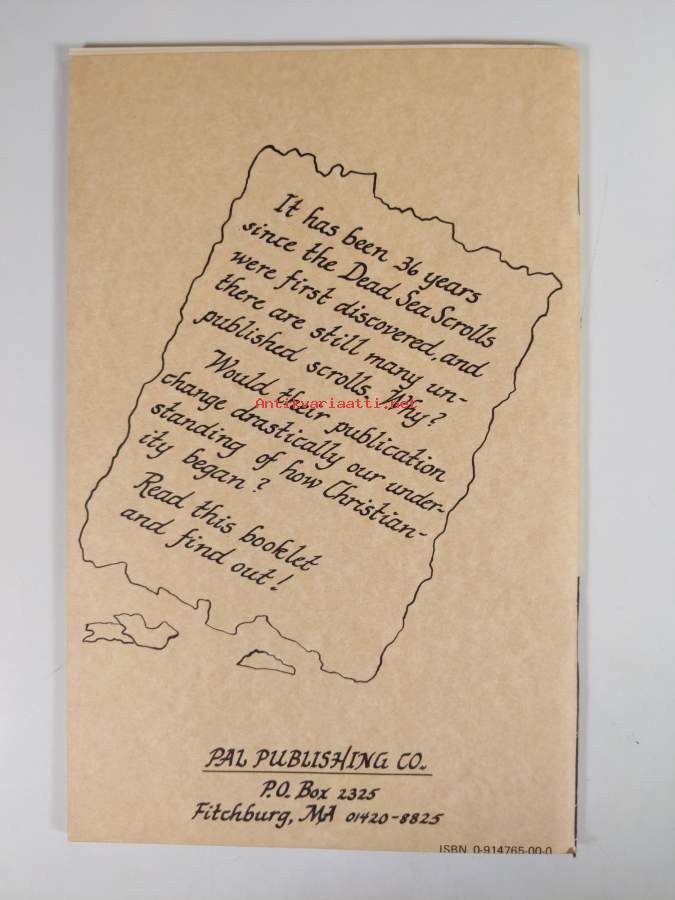 It has been 36 years
since the Dead Sea Scrolls
were first discovered, and
there are still many un-
published scrolls. Why?
Would their publication
change drastically our under-
standing of how Christian-
ity began?
Read this booklet
and find out!
Antikvariaatti.net
PAL PUBLISHING CO.
P.O. Box 2325
Fitchburg, MA 01420-8825
ISBN 0-914765-00-0